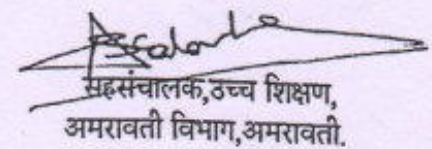 सहसंचालक,उच्च शिक्षण,
अमरावती विभाग,अमरावती.